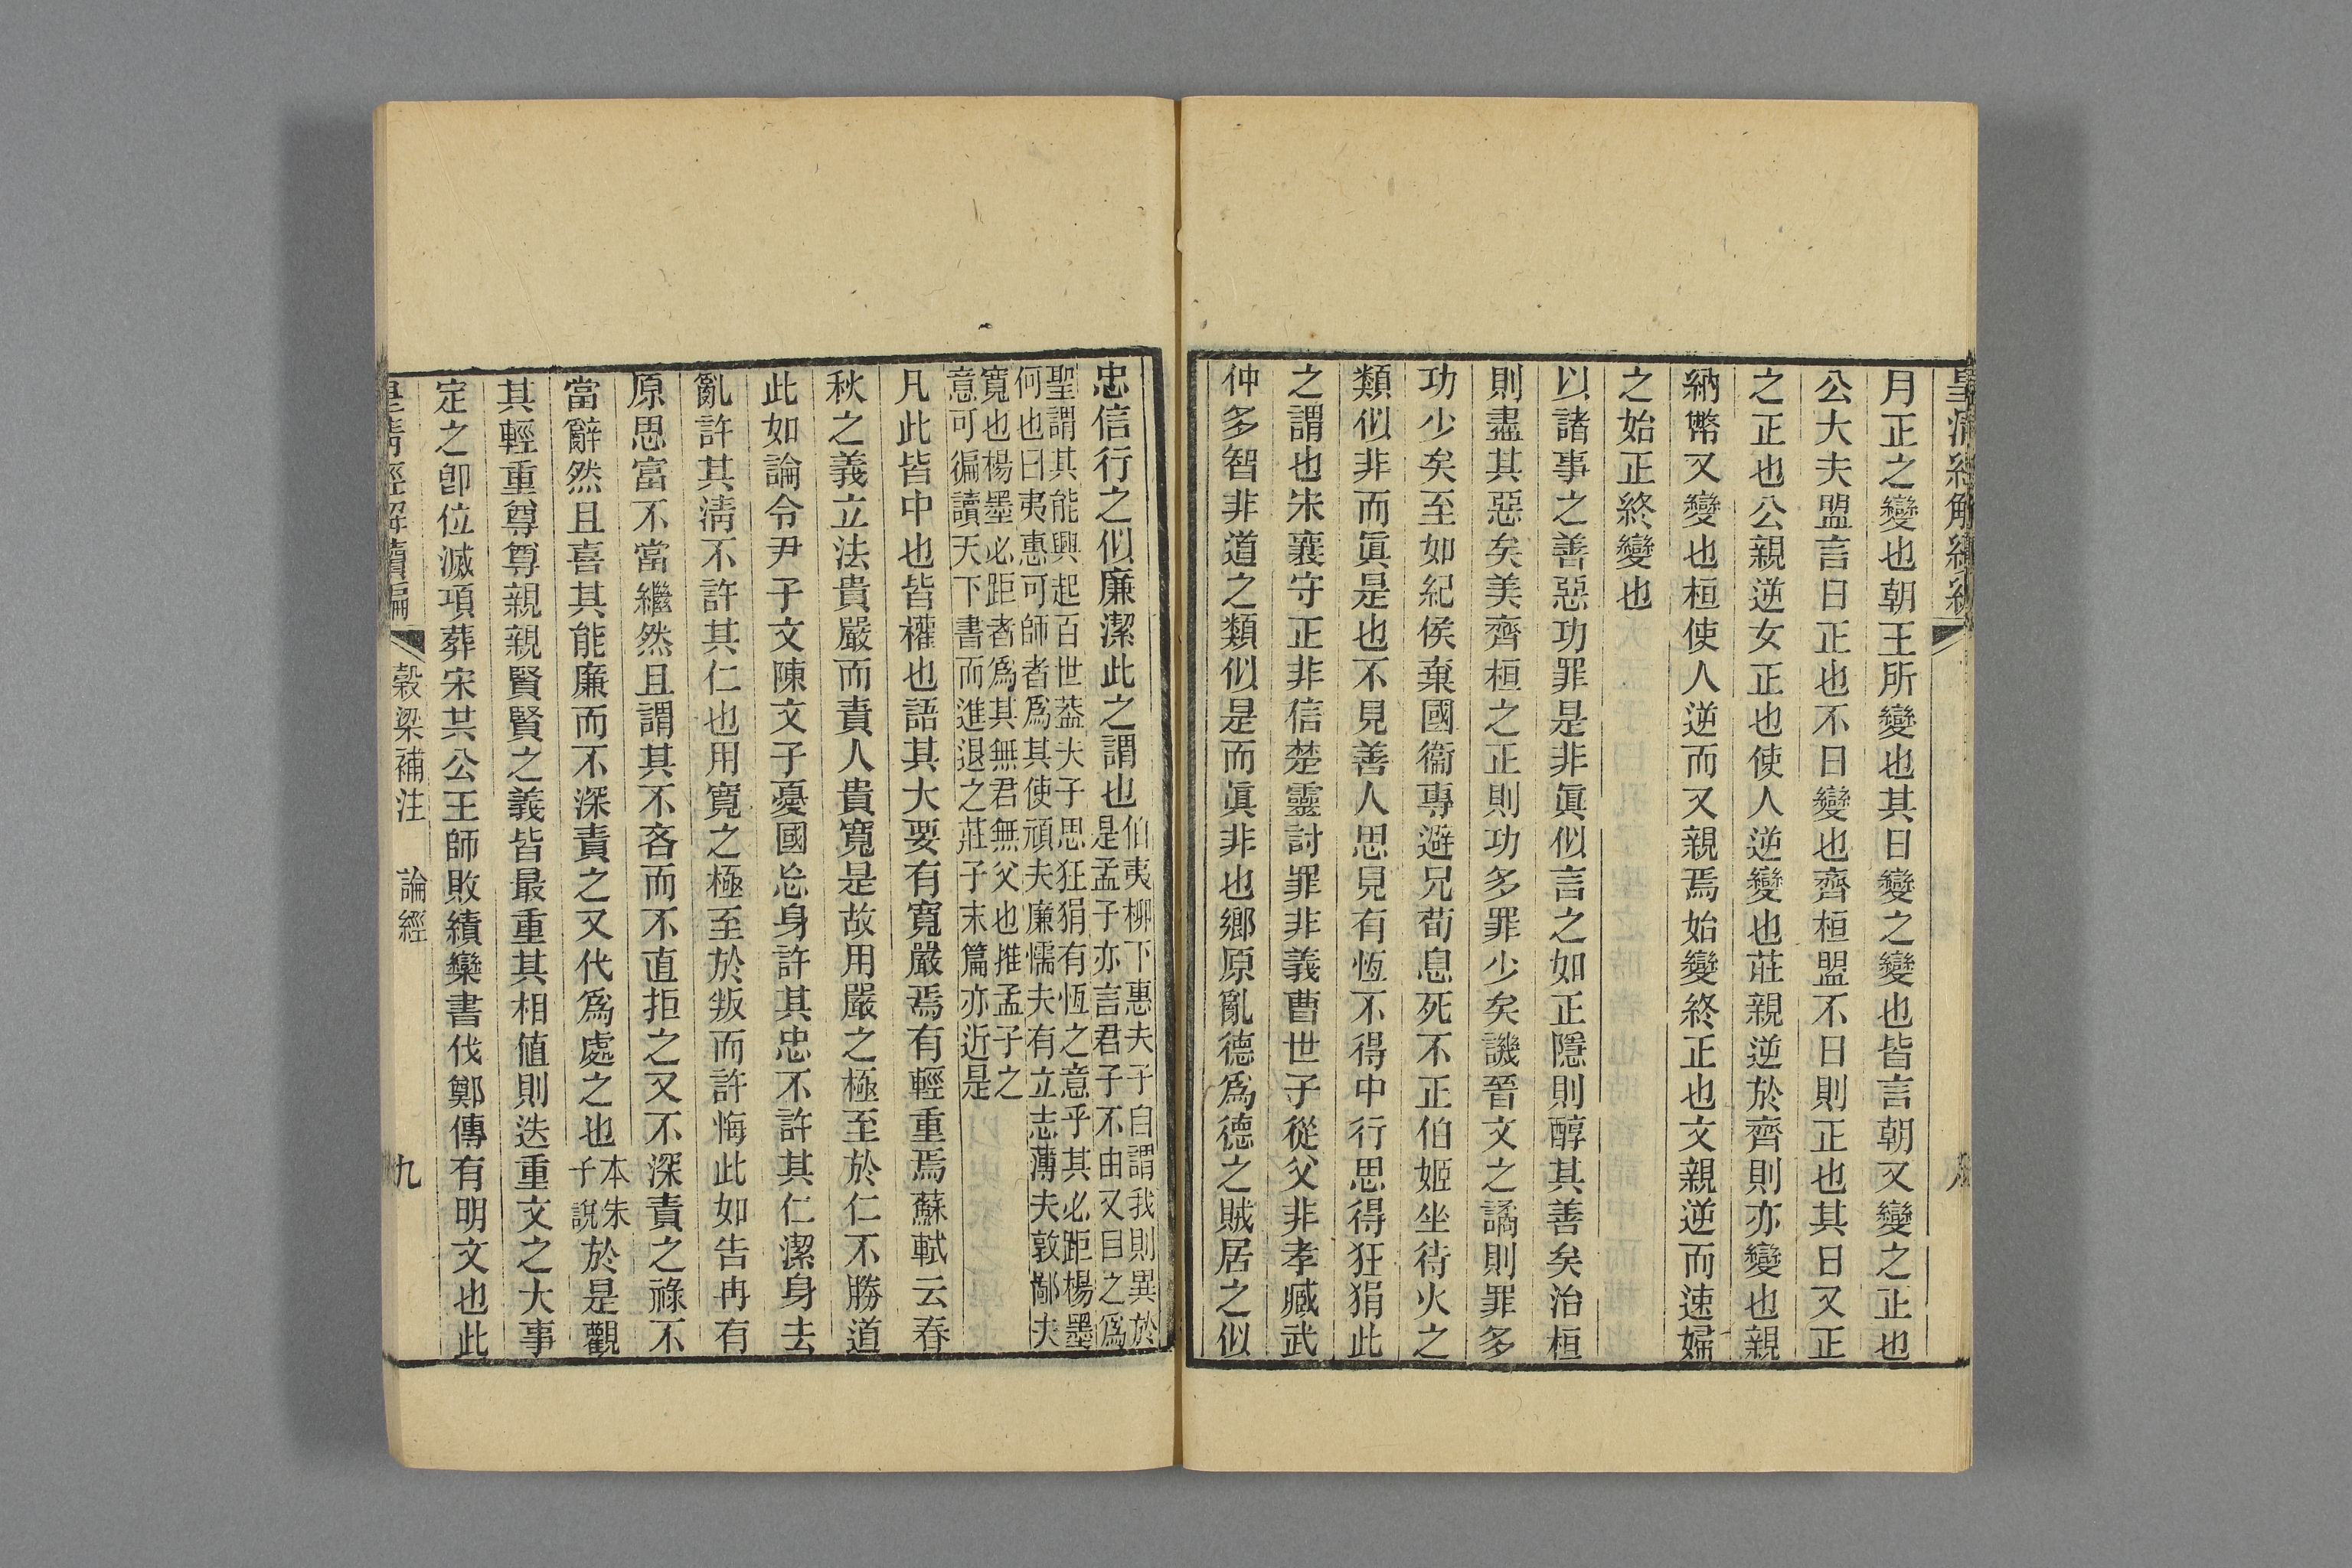 皇清經解續編
月正之變也朝王所變也其日變之變也皆言朝又變之正也
公大夫盟言日正也不日變也齊桓盟不日則正也其日又正
之正也公親逆女正也使人逆變也莊親逆於齊則亦變也親
納幣又變也桓使人逆而又親焉始變終正也文親逆而速婦
之始正終變也
以諸事之善惡功罪是非眞似言之如正隱則醇其善矣治桓
則盡其惡矣美齊桓之正則功多罪少矣譏晉文之譎則罪多
功少矣至如紀侯棄國衞專避兄荀息死不正伯姬坐待火之
類似非而眞是也不見善人思見有恆不得中行思得狂狷此
之謂也宋襄守正非信楚靈討罪非義曹世子從父非孝臧武
仲多智非道之類似是而眞非也鄉原亂德爲德之賊居之似
忠信行之似廉潔此之謂也伯夷柳下惠夫子自謂我則異於
是孟子亦言君子不由又目之爲
聖謂其能興起百世葢夫子思狂狷有恆之意乎其必距楊墨
何也曰夷惠可師者爲其使頑夫廉懦夫有立志薄夫敦鄙夫
寬也楊墨必距者爲其無君無父也推孟子之
意可徧讀天下書而進退之莊子末篇亦近是
凡此皆中也皆權也語其大要有寬嚴焉有輕重焉蘇軾云春
秋之義立法貴嚴而責人貴寬是故用嚴之極至於仁不勝道
此如論令尹子文陳文子憂國忘身許其忠不許其仁潔身去
亂許其淸不許其仁也用寬之極至於叛而許悔此如告冉有
原思富不當繼然且謂其不吝而不直拒之又不深責之祿不
當辭然且喜其能廉而不深責之又代爲處之也本朱
子說於是觀
其輕重尊尊親親賢賢之義皆最重其相値則迭重文之大事
定之卽位滅項葬宋共公王師敗績欒書伐鄭傳有明文也此
皇淸經解續編
穀梁補注
論經
九